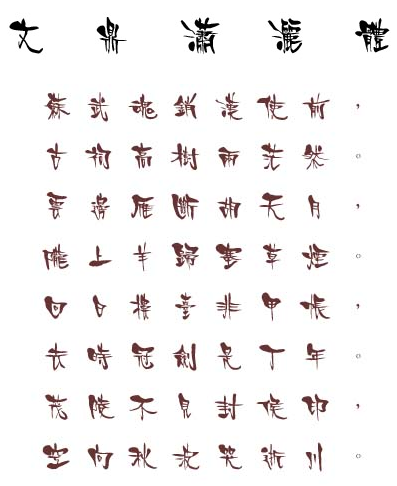 文鼎瀟灑體
蘇武魂銷漢使前，
古祠高樹兩茫然。
雲邊雁斷胡天月，
隴上羊歸塞草煙。
回日樓臺非甲帳，
去時冠劍是丁年。
茂陵不見封侯印，
空向秋波哭逝川。